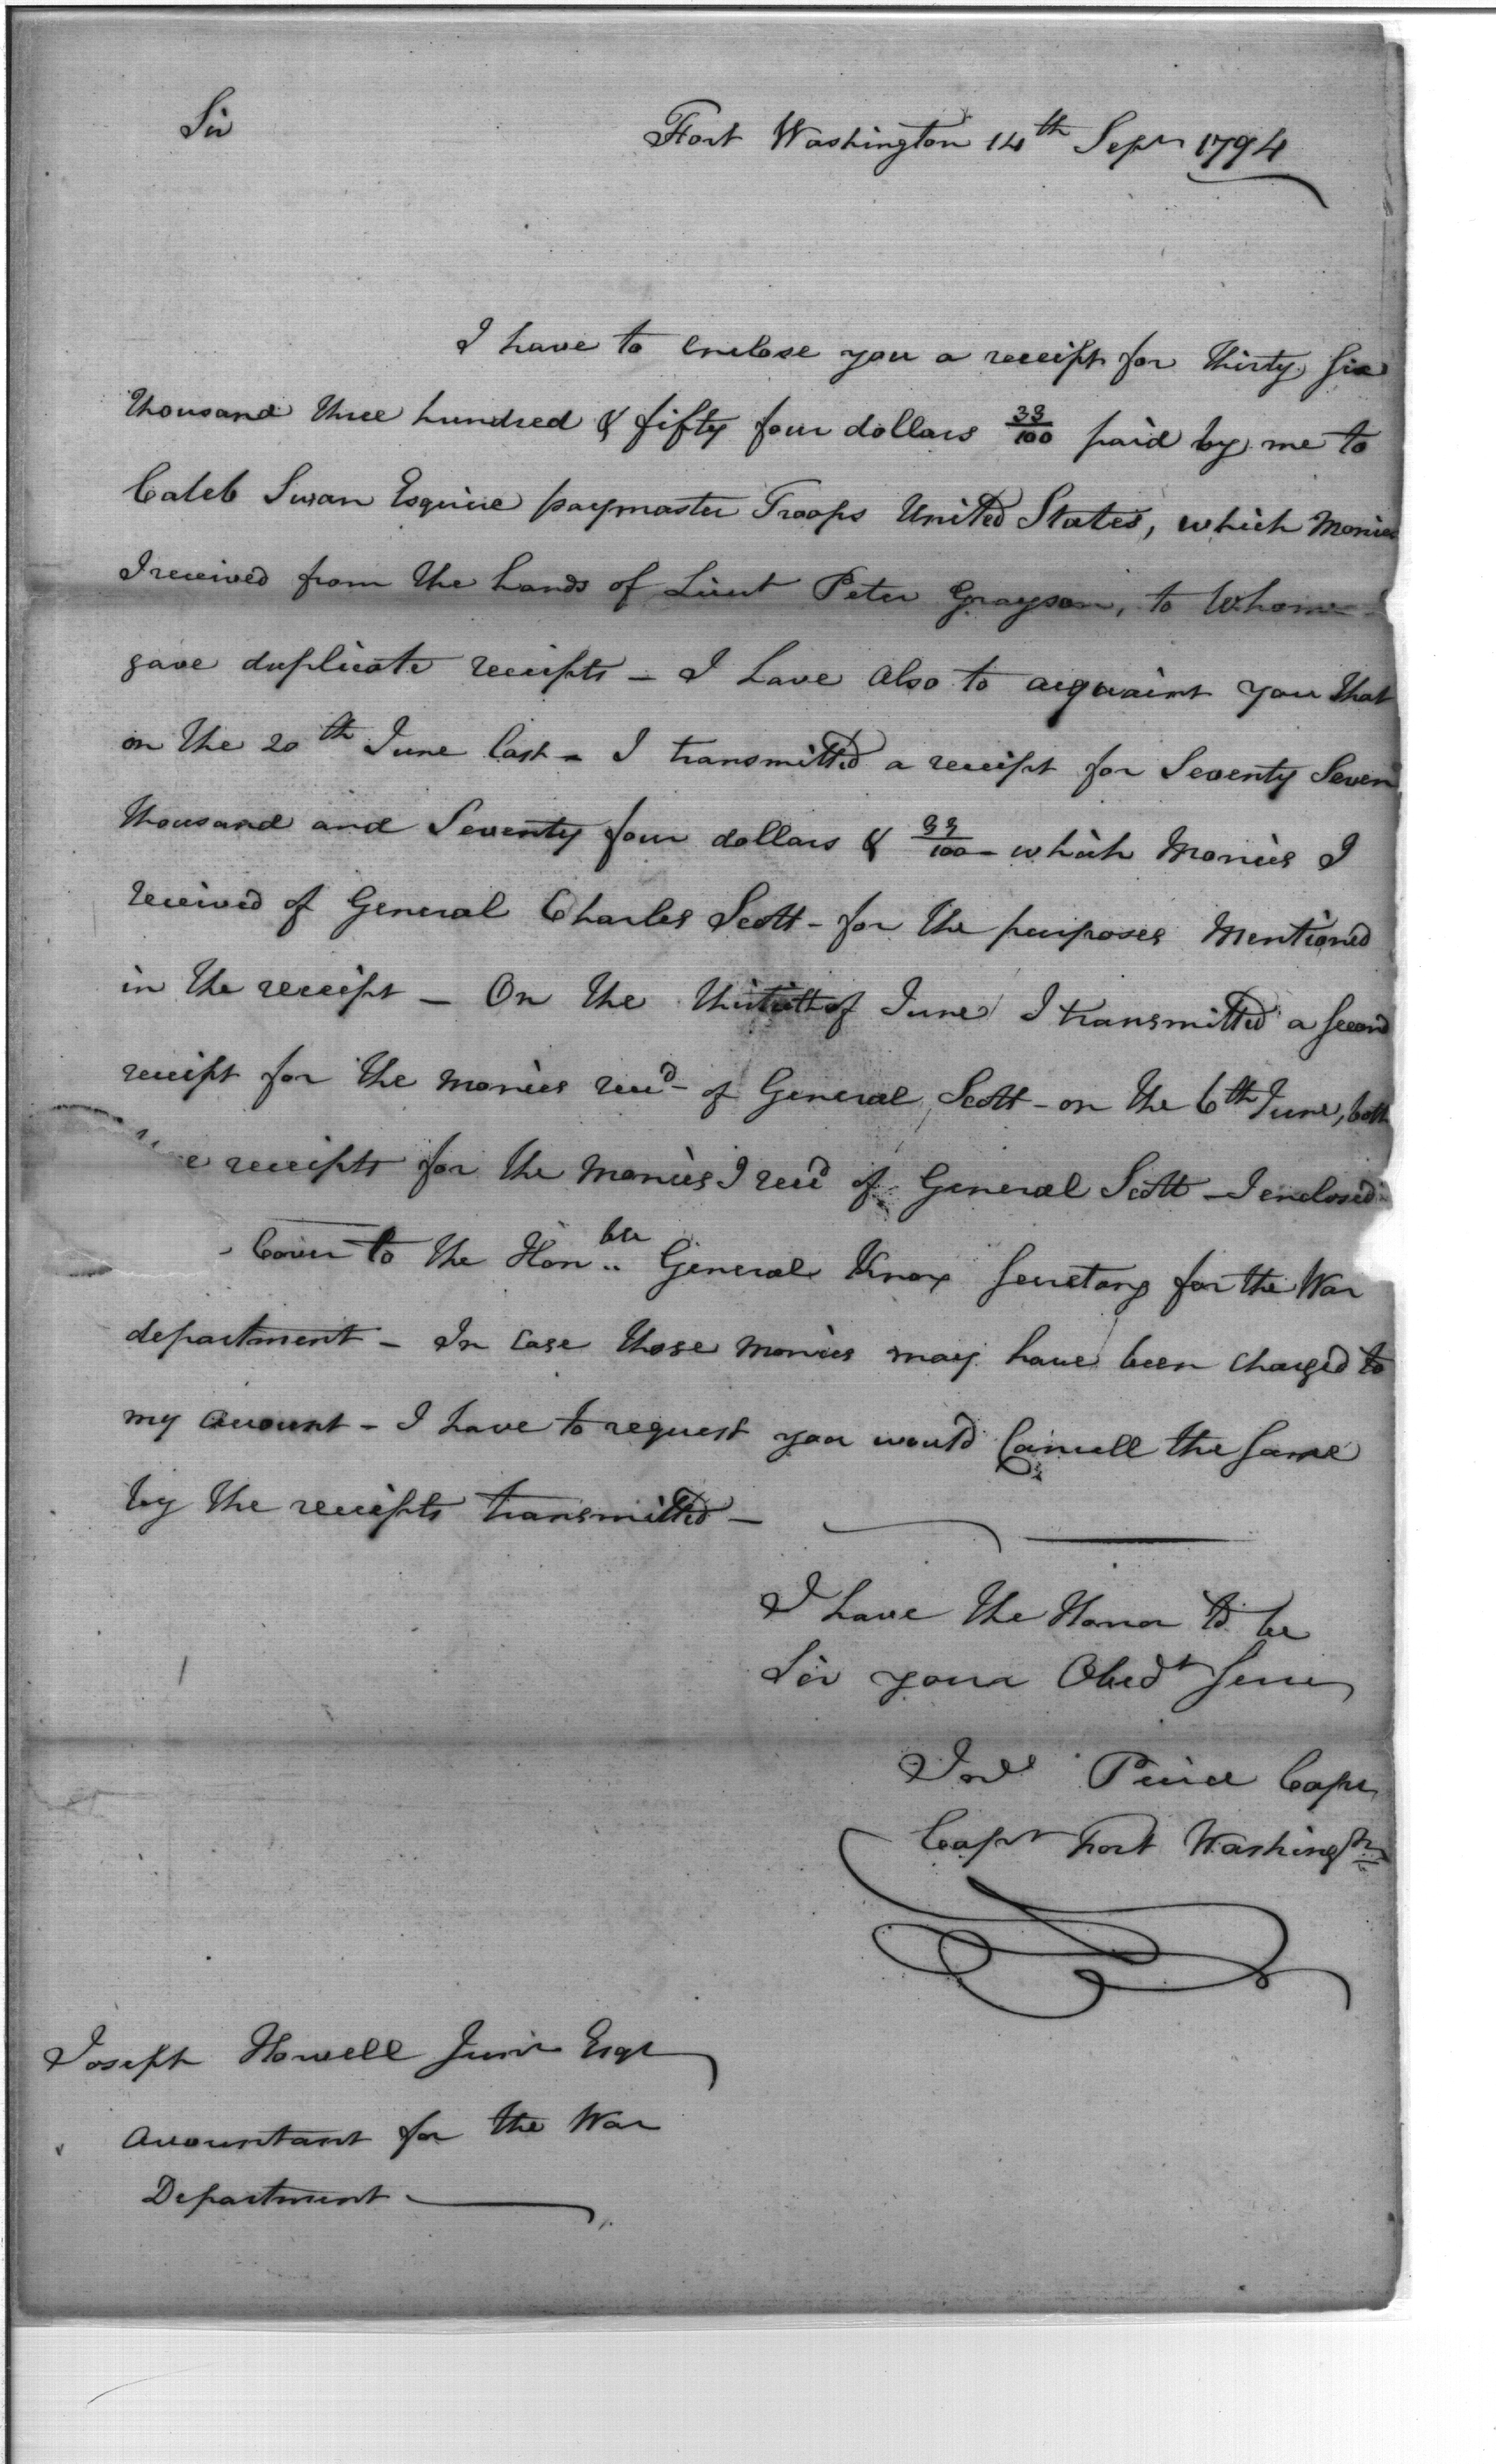 Sir
Fort Washington 14th Sepr 1794
I have to enclose you a receipt for thirty six
thousand three hundred & fifty four dollars 33/100 paid by me to
Caleb Swan Esquire paymaster Troops United States, which Monies
I received from the hands of Lieut Peter Grayson, to Whom
gave duplicate receipts - I have also to acquaint you that
on the 20th June last - I transmitted a receipt for Seventy Seven
thousand and Seventy four dollars & 33/100 - which Monies I
received of General Charles Scott - for the purposes Mentioned
in the receipt - On the thirtieth of June I transmitted a second
receipt for the monies recd of General Scott - on the 6th June, both
receipts for the Monies I recd of General Scott - I enclosed
Cover to the Honble General Knox Secretary for the War
department - In case those monies may have been charged to
my account - I have to request you would Cancell the same
by the receipts transmitted -
I have the Honor to be
Sir your Obedt Serv
Jno Peirce Capt
Capt Fort Washingtn
Joseph Howell Junr Esqr
Accountant for the War
Department